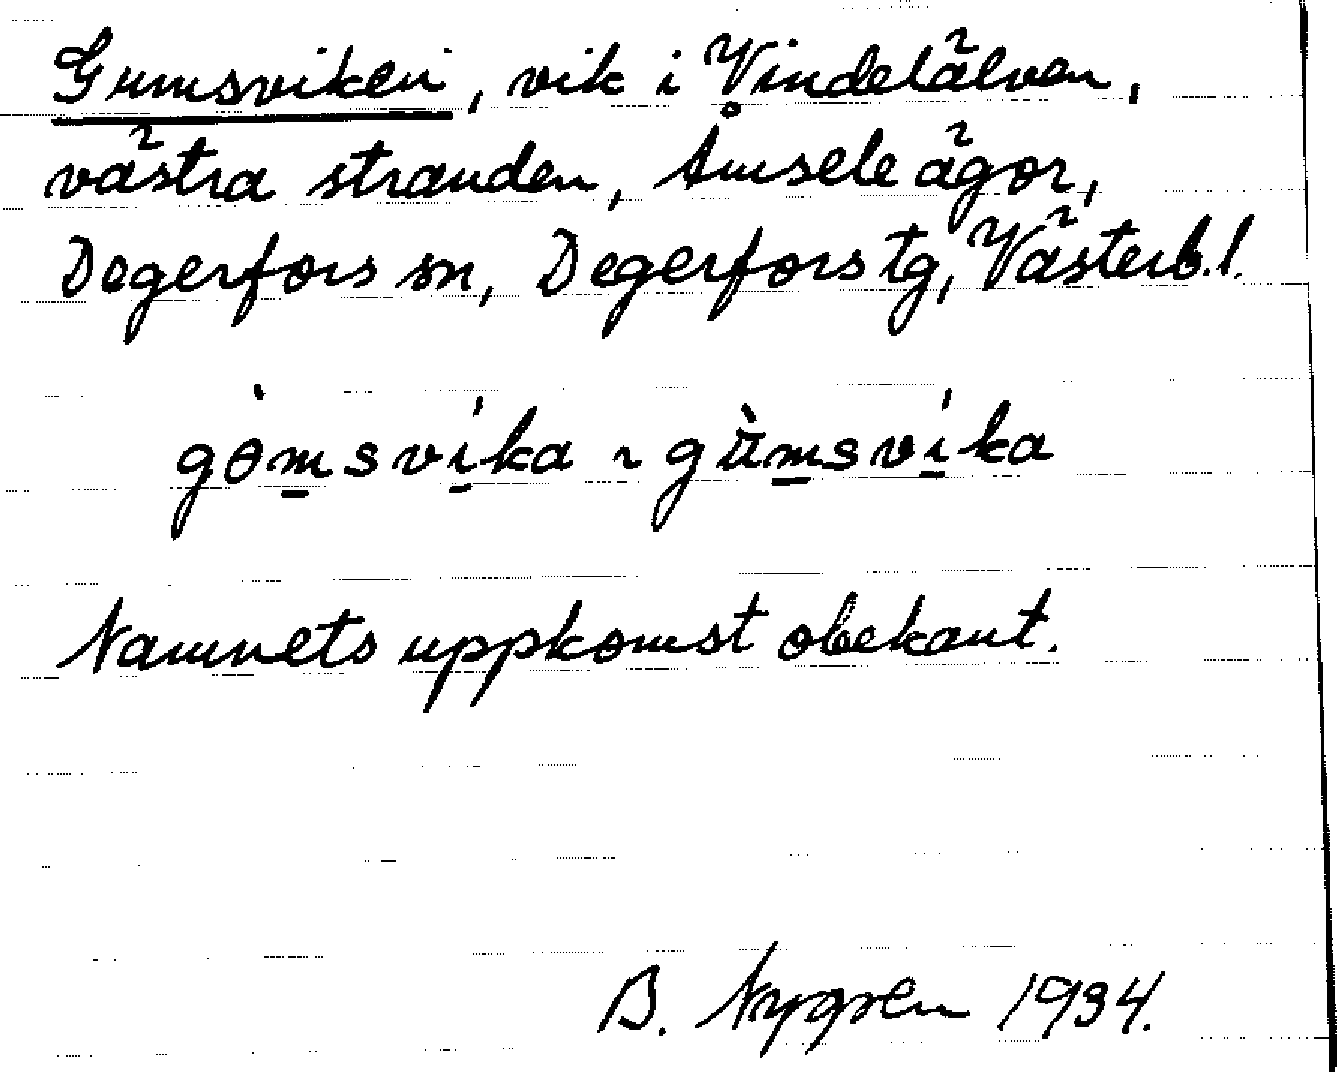 Gumsviken, vik i Vindelälven,
västra stranden, Åmsele ägor,
Degerfors sn, Degerfors tg, Västerb. l.
gòmsvíka ~ gùmsvíka
Namnets uppkomst obekant.
B. Nygren 1934.